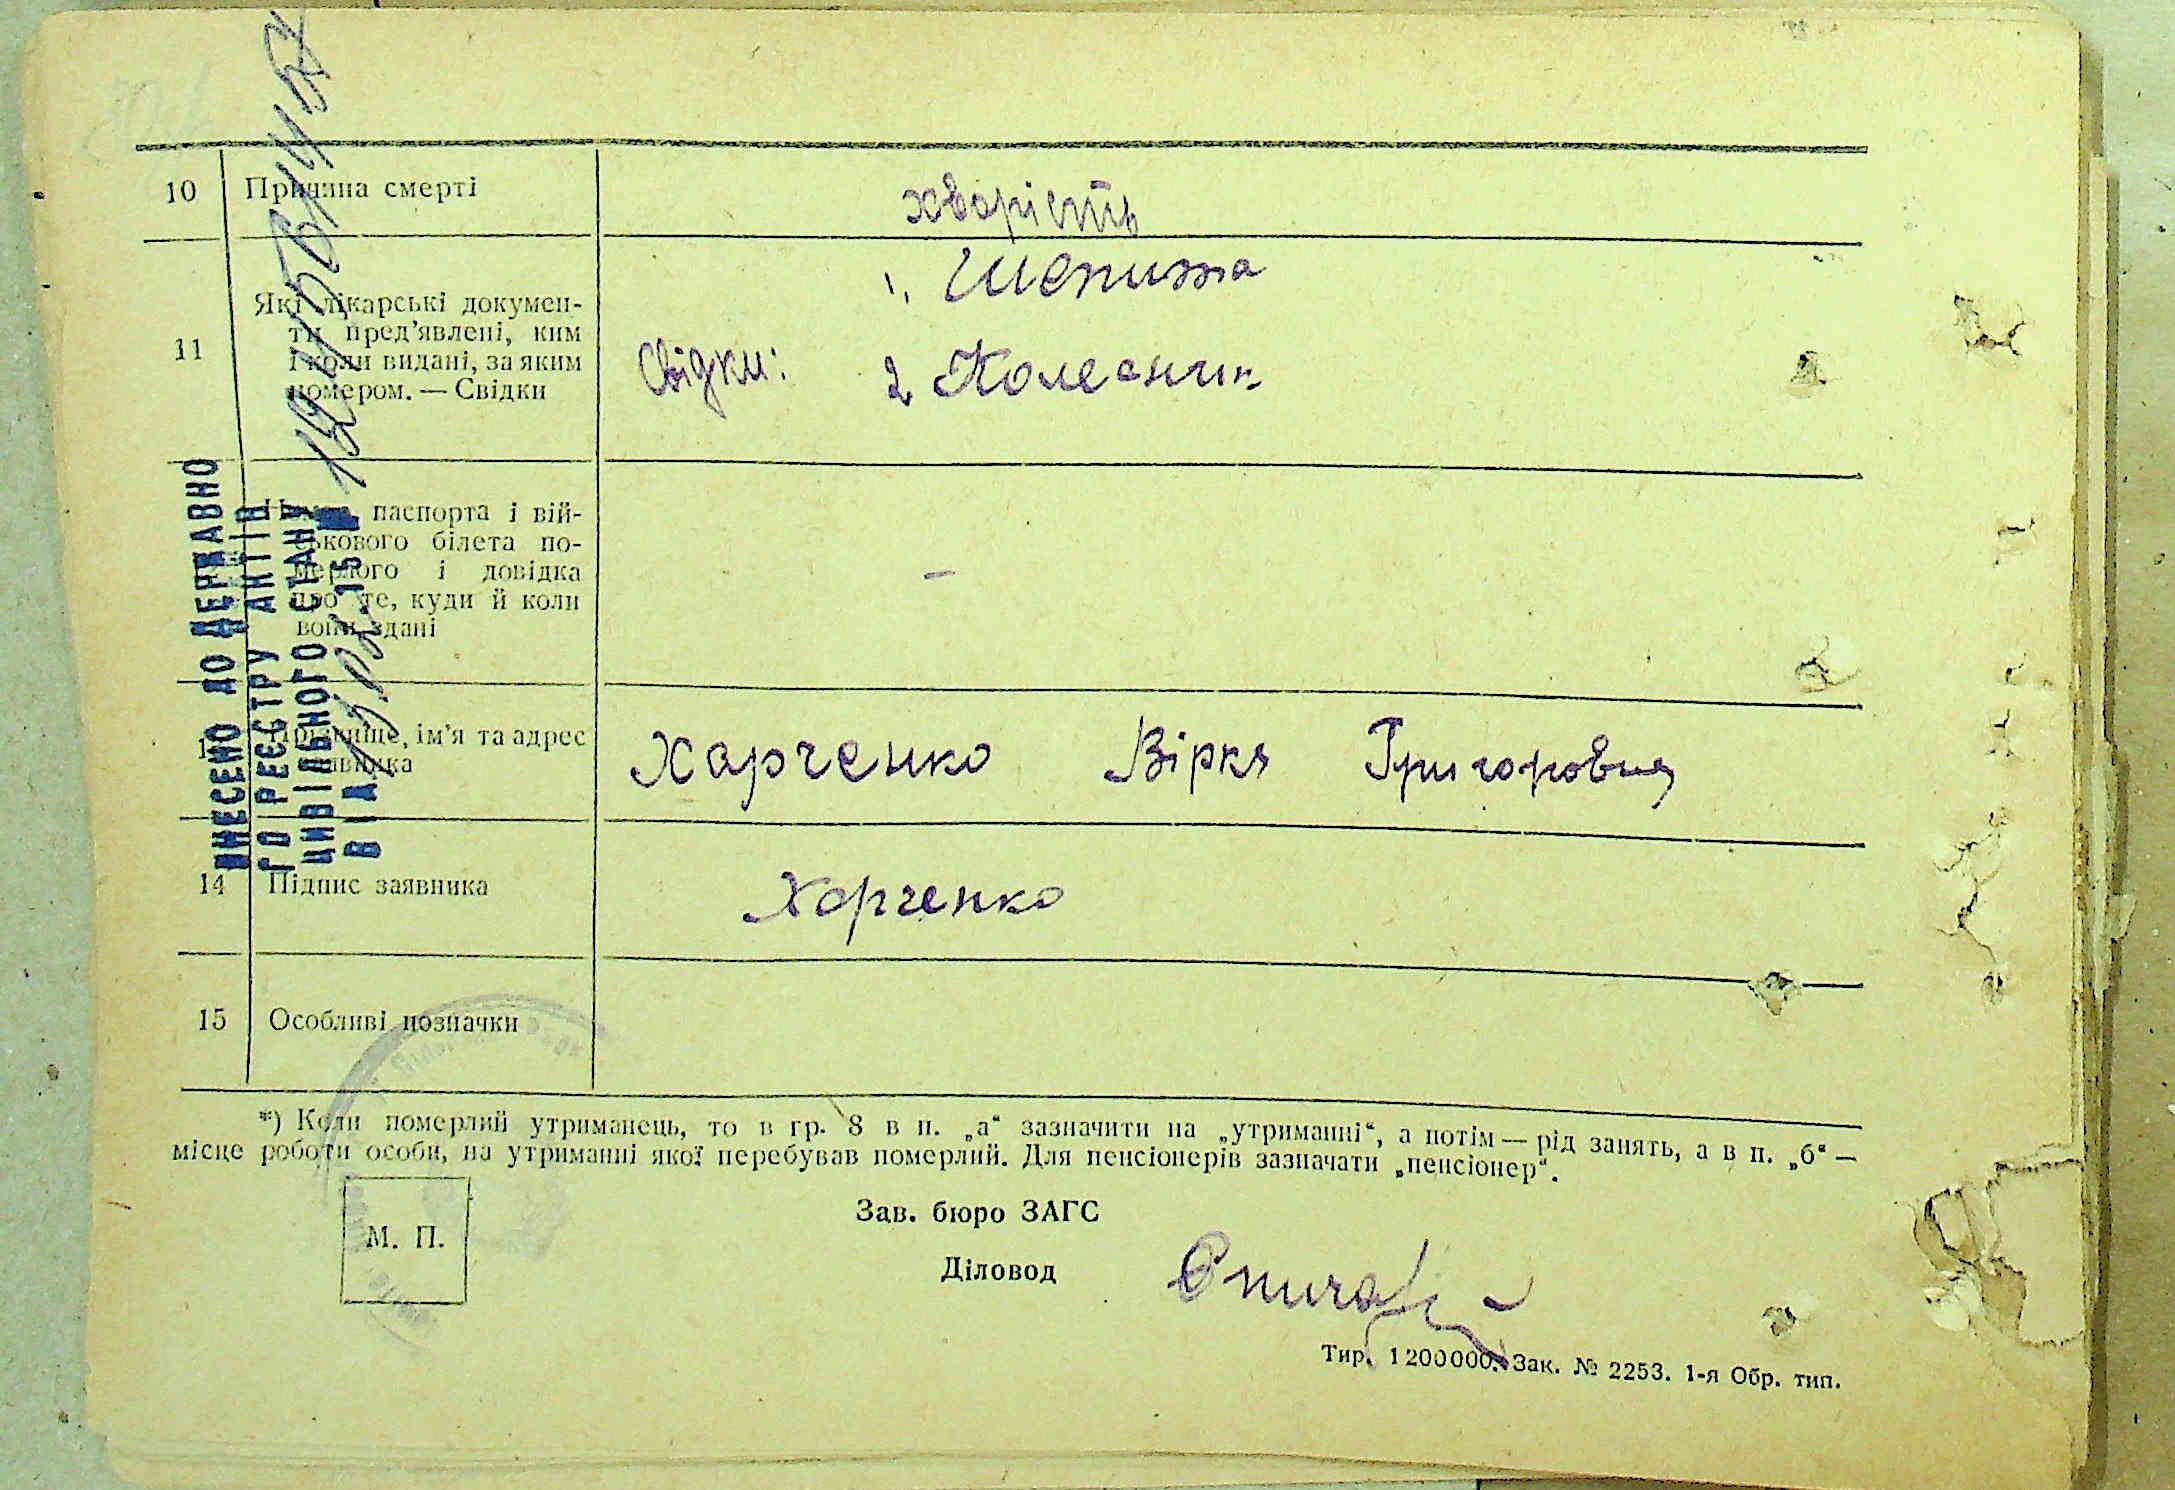 10 Причина смерті хворість
1. Шепита
11 Які лікарські докумен-
ти пред'явлені, ким
і коли видані, за яким
номером. — Свідки
Свідки: 2 Колесник
паспорта і вій-
ськового білета по-
мерлого і довідка
про те, куди й коли
вони здані
–
Прізвище, ім'я та адрес
заявника
Харченко Вірка Григоровна
14 Підпис заявника Харченко
15 Особливі позначки
*) Коли померлий утриманець, то в гр. 8 в п. „а“ зазначити на „утриманні“, а потім — рід занять, а в п. „б“ —
місце роботи особи, на утриманні якої перебував померлий. Для пенсіонерів зазначати „пенсіонер“.
М. П.
Зав. бюро ЗАГС
Діловод
Тир. 1200000. Зак. № 2253. 1-я Обр. тип.
ВНЕСЕНО ДО ДЕРЖАВНО
ГО РЕЄСТРУ АКТІВ
ЦИВІЛЬНОГО СТАНУ
ВІД